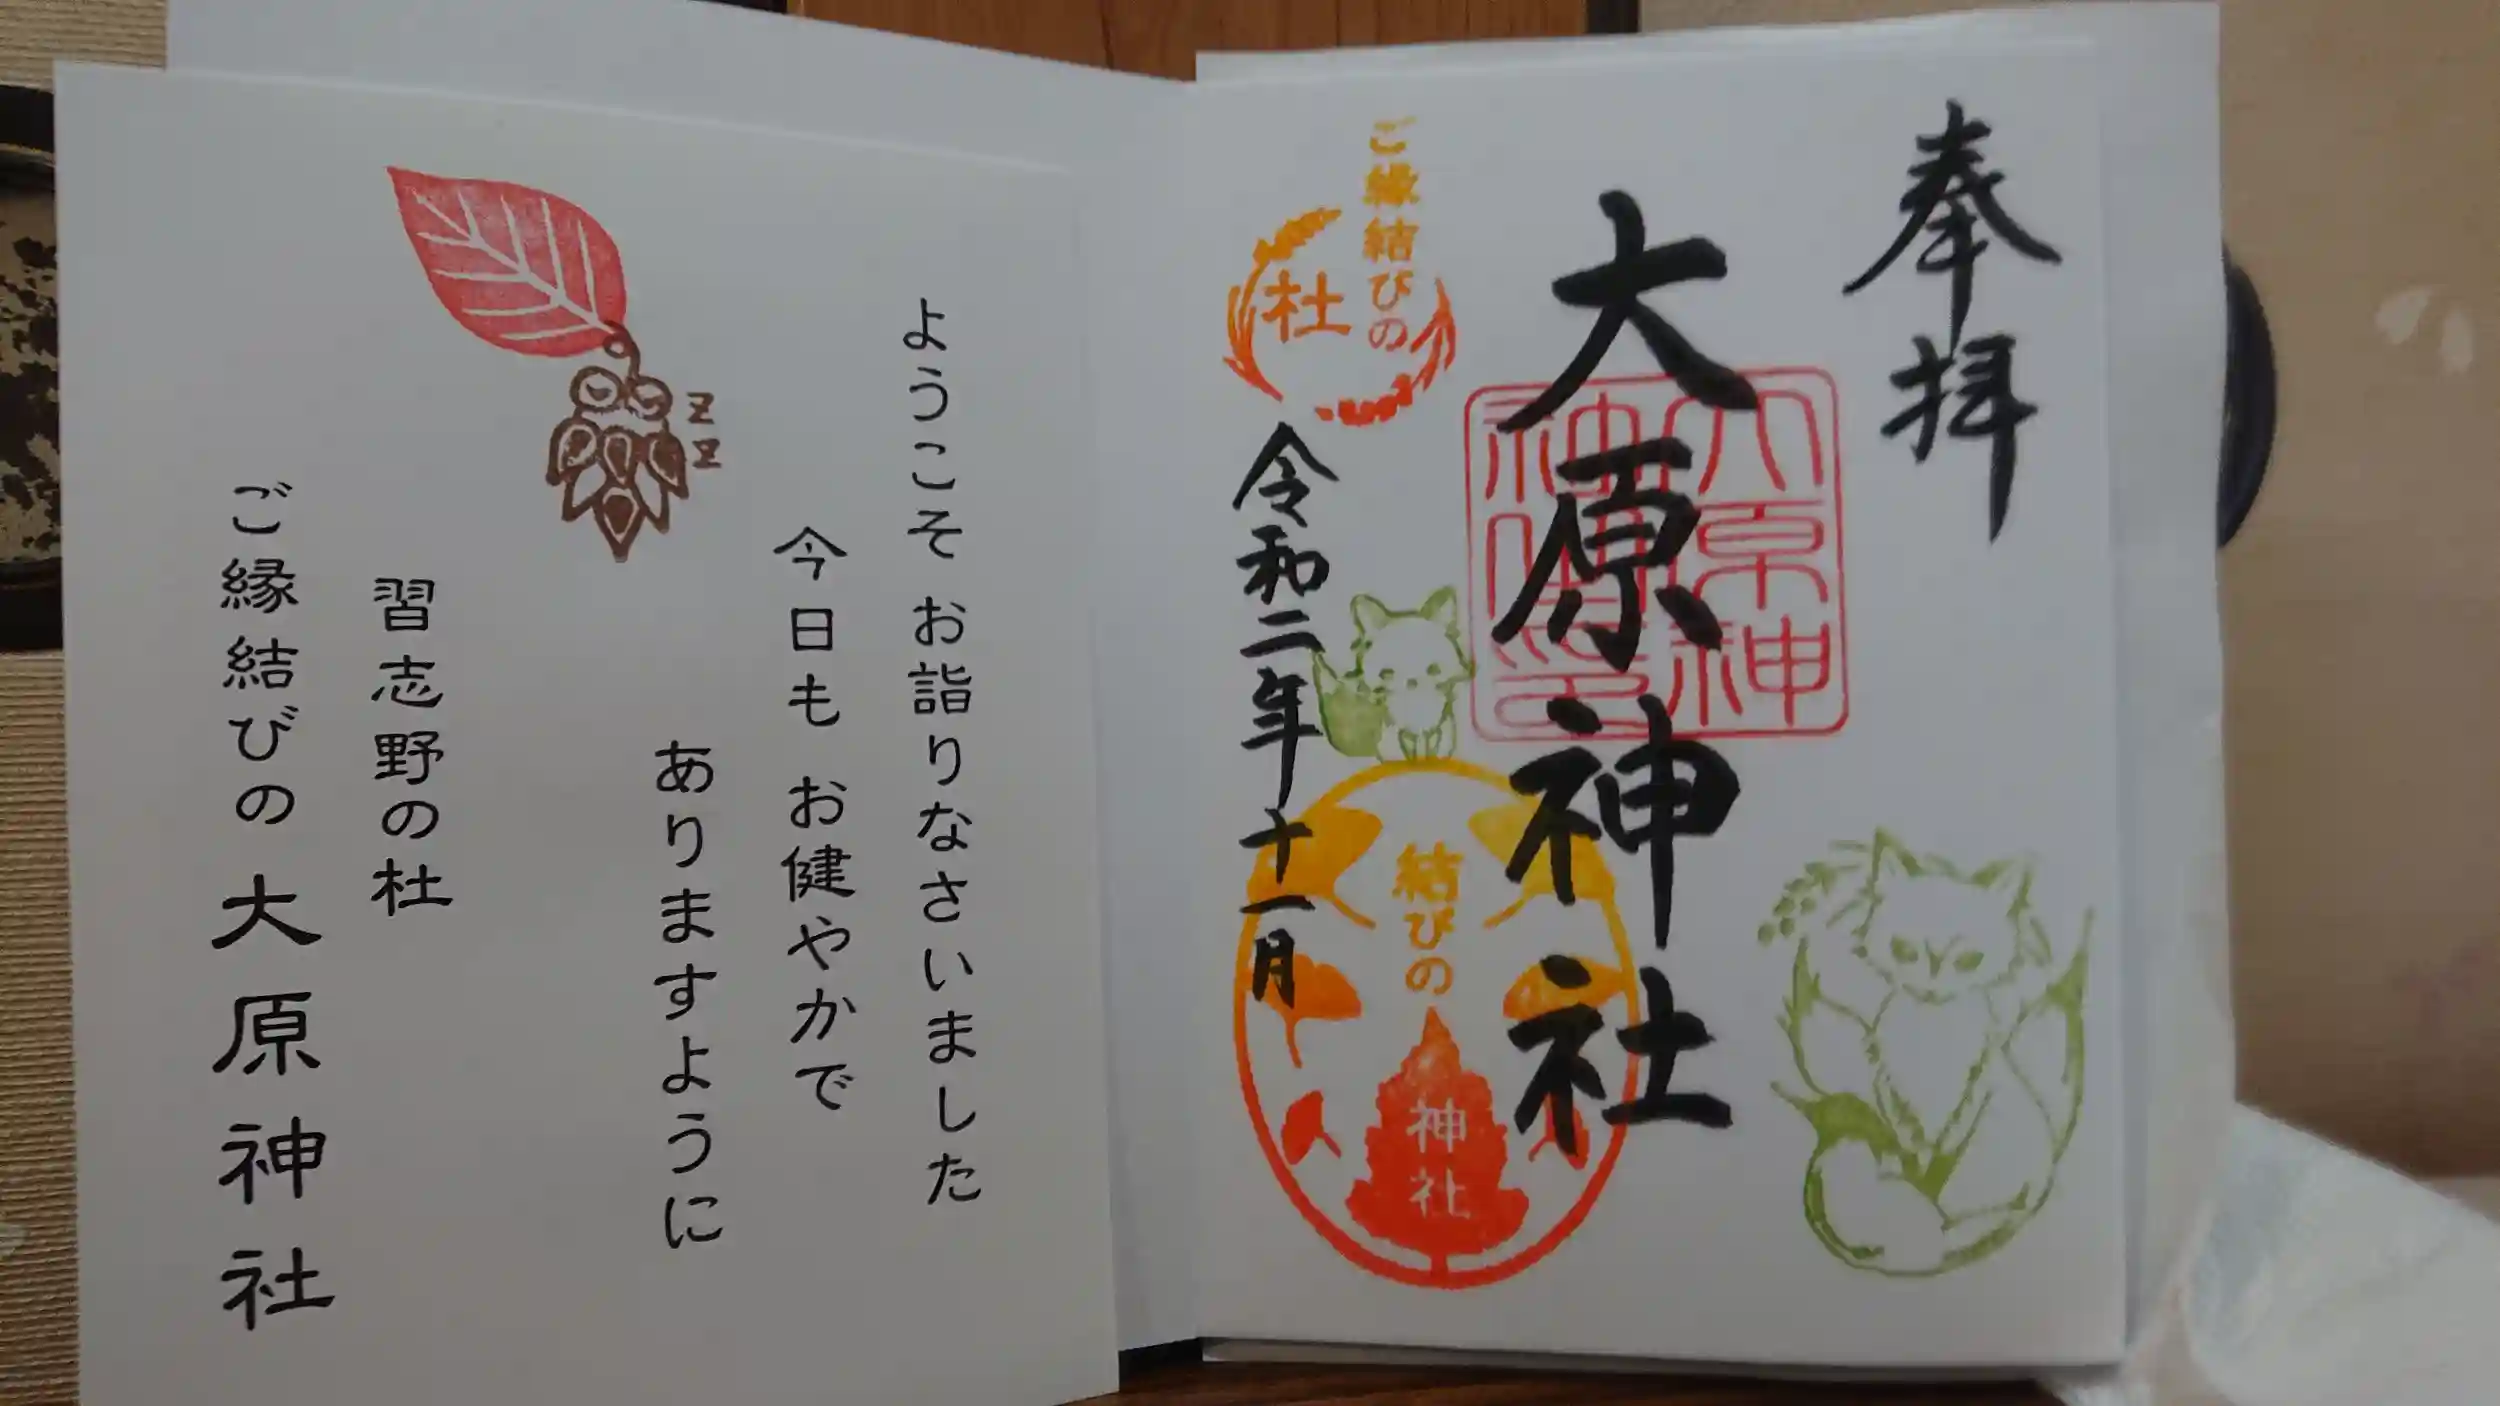 奉拝
大原神社
大原神社御印
ご縁結びの
杜
令和二年十一月
結びの
神社
ようこそ お詣りなさいました
今日も お健やかで
ありますように
zz
習志野の杜
ご縁結びの 大原神社